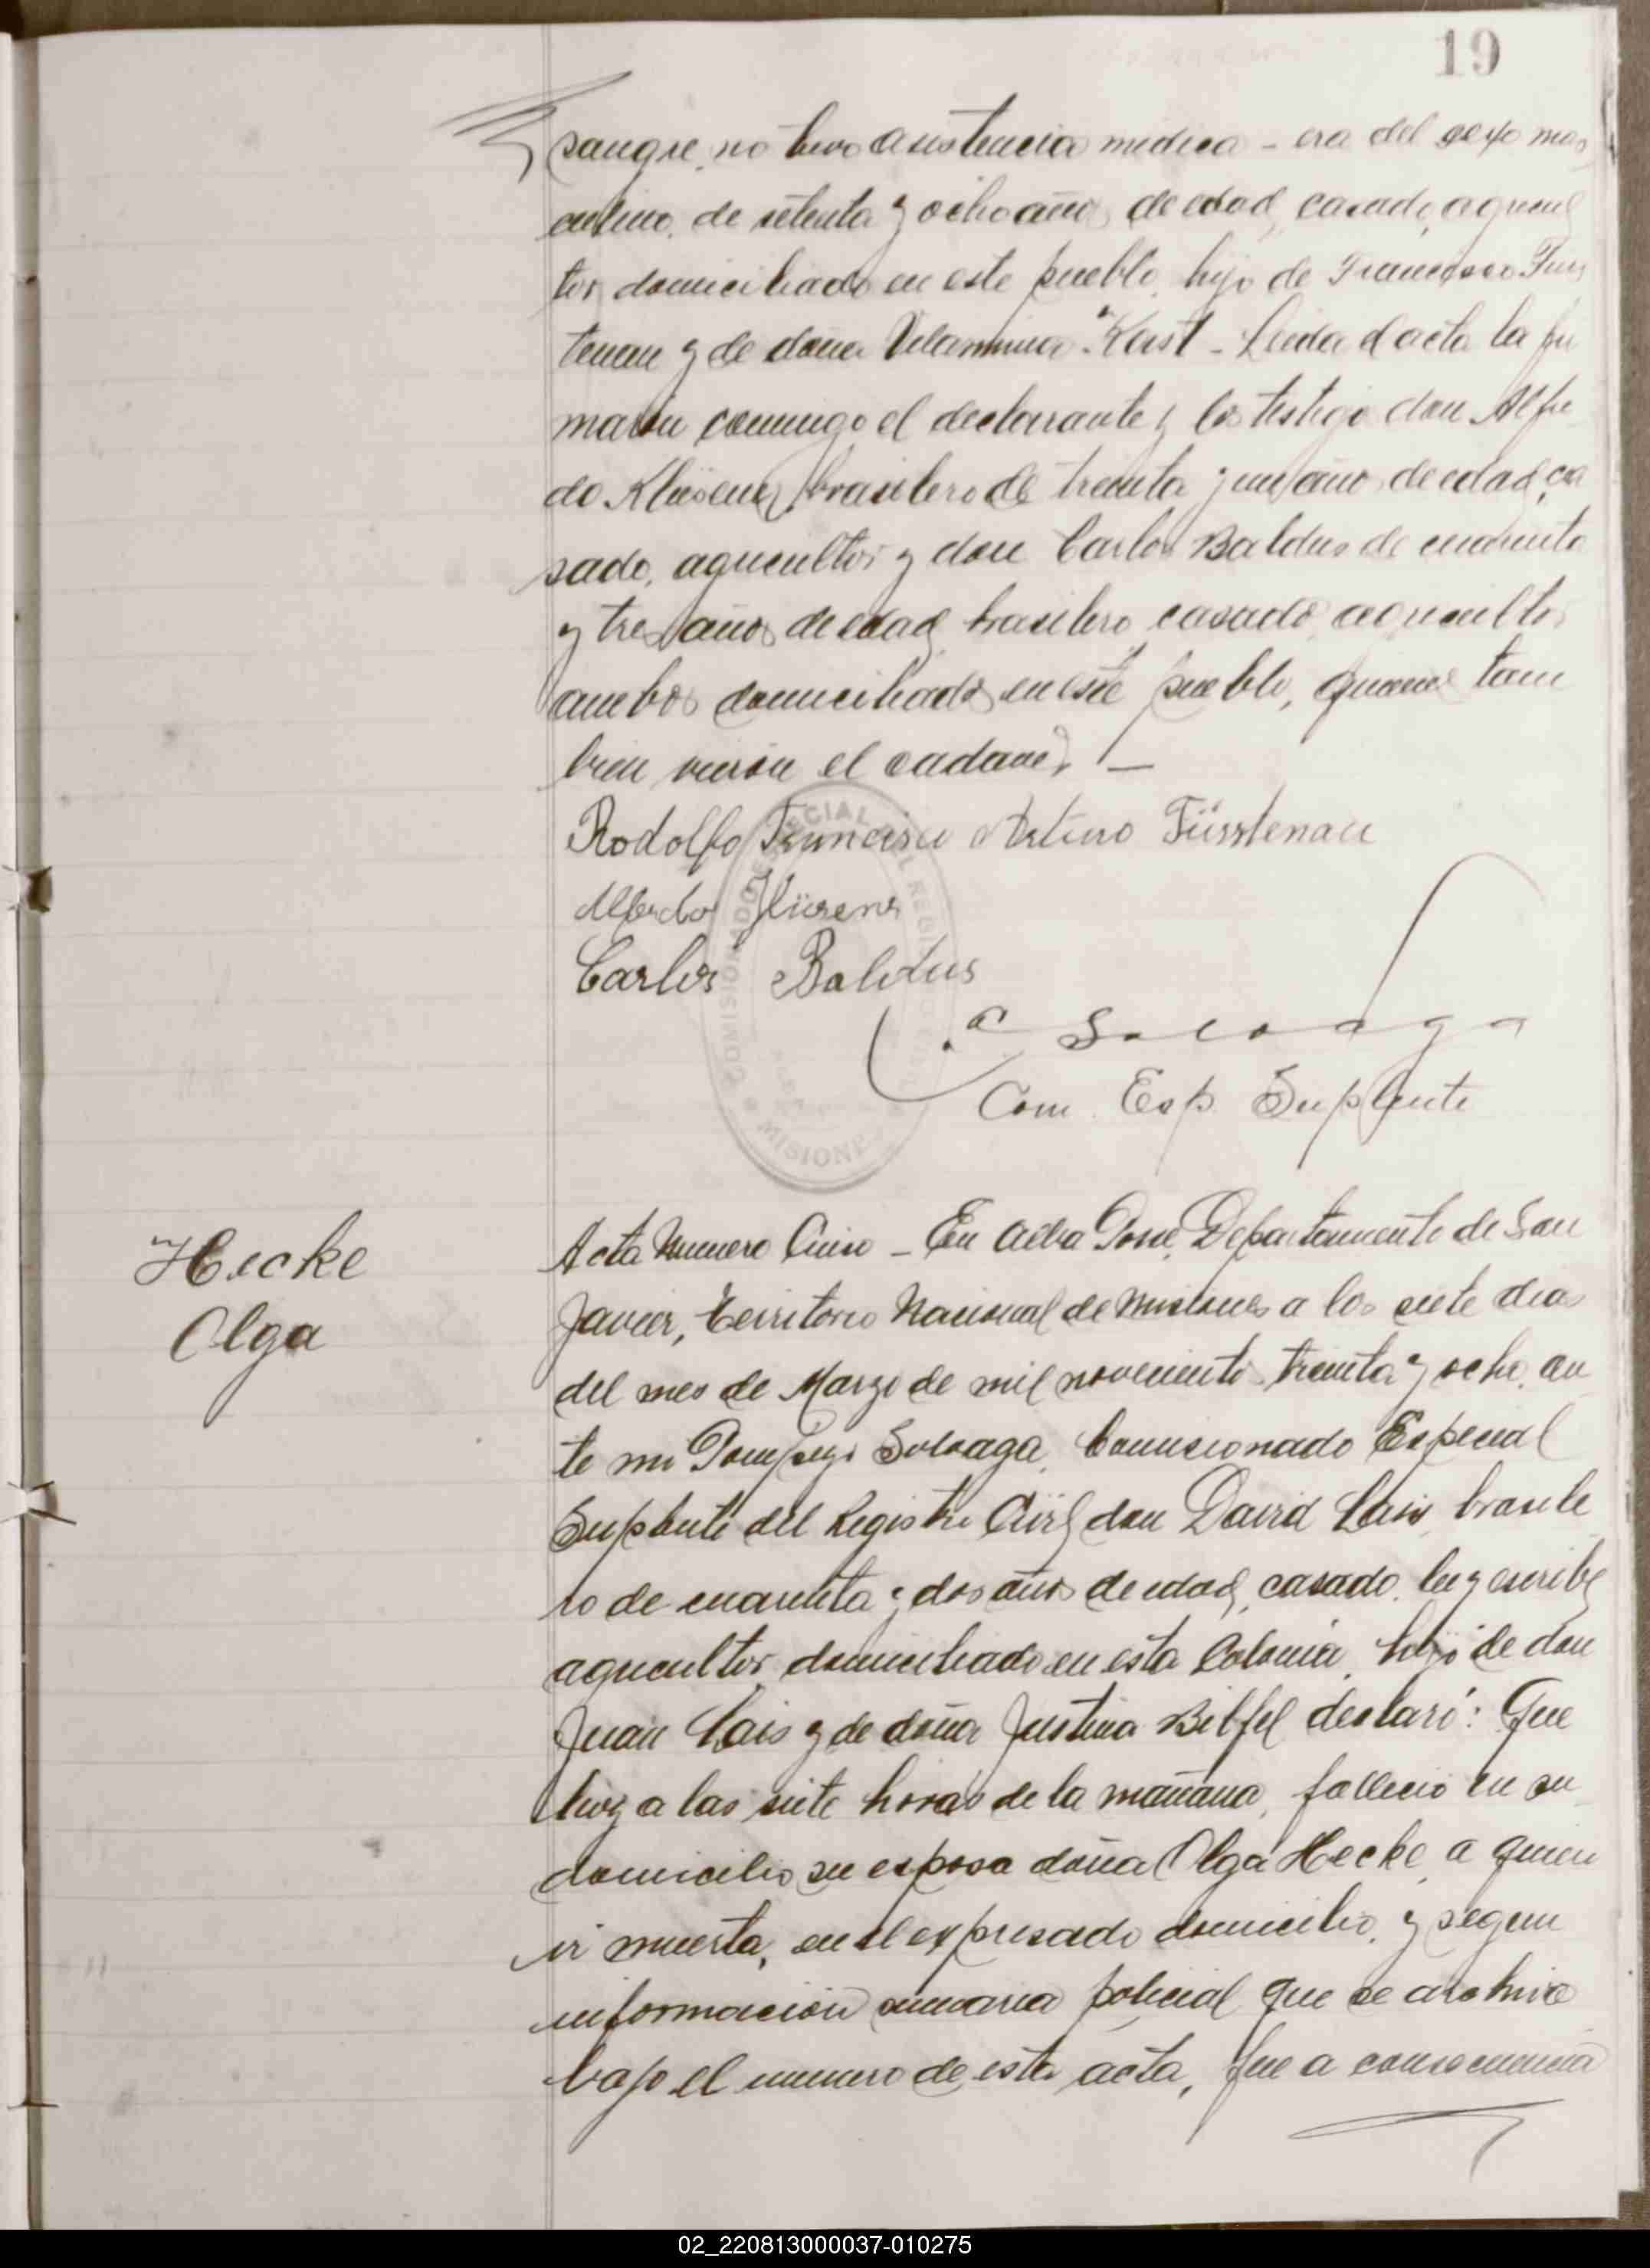 19
sangre, no tuvo asistencia medica - era del sexo mas
culino, de setenta y ocho años de edad, casado, agricul
tor domiciliado en este pueblo, hijo de Francisco Furs
tenau y de doña Kast - Leida el acta la fir
maron conmigo el declarante y los testigo don Alfre
do Klüsener, brasilero de treinta y un año de edad, ca
sado, agricultor y don Carlos Baldus de cuarenta
y tres años de edad, brasilero, casado, agricultor
ambos domiciliados en este pueblo, quienes tam
bien vieron el cadaver. —
Rodolfo Francisco Arturo Fürstenau
Alfredo Klüsener
Carlos Baldus
Soloaga
Com. Esp. Suplente
MISIONES
Hecke
Olga
Acta Numero Cinco - En Alba Posse, Departamento de San
Javier, Territorio Nacional de Misiones a los siete dias
del mes de Marzo de mil noveciento treinta y ocho, an
te mi Pompeyo Soloaga, Comisionado Especial
Suplente del Registro Civil don David Lais, brasile
ro de cuarenta y dos años de edad, casado, lee y escribe
agricultor, domiciliado en esta Colonia, hijo de don
Juan Lais y de doña Justina Bilfel declaró: Que
hoy a las siete horas de la mañana, fallecio en su
domicilio su esposa doña Olga Hecke, a quien
vi muerta, en el expresado domicilio, y segun
información sumaria policial que se archiva
bajo el numero de esta acta, fue a consecuencia
02_220813000037-010275